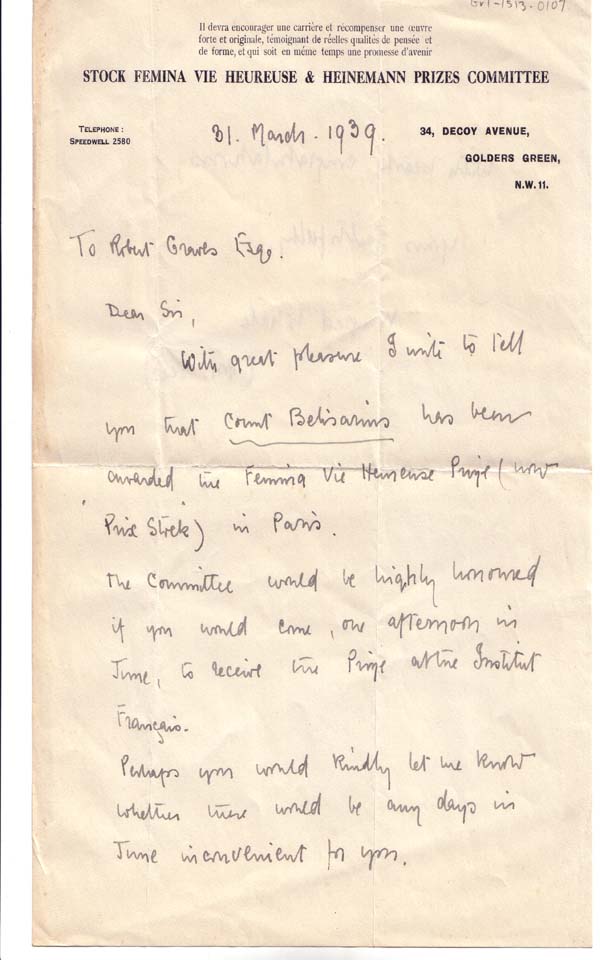 GVT-1513-0107
Il devra encourager une carrière et récompenser une œuvre
forte et originale, témoignant de réelles qualités de pensée et
de forme, et qui soit en même temps une promesse d'avenir
STOCK FEMINA VIE HEUREUSE & HEINEMANN PRIZES COMMITTEE
TELEPHONE:
SPEEDWELL 2580
31. March. 1939.
34, DECOY AVENUE,
GOLDERS GREEN,
N.W. 11.
To Robert Graves Esqe.
Dear Sir,
With great pleasure I write to tell
you that Count Belisarius has been
awarded the Femina Vie Heureuse Prize (now
'Prix Stock') in Paris.
The Committee would be highly honoured
if you would come, one afternoon in
June, to receive the Prize at the Institut
Français.
Perhaps you would kindly let me know
whether there would be any days in
June inconvenient for you.